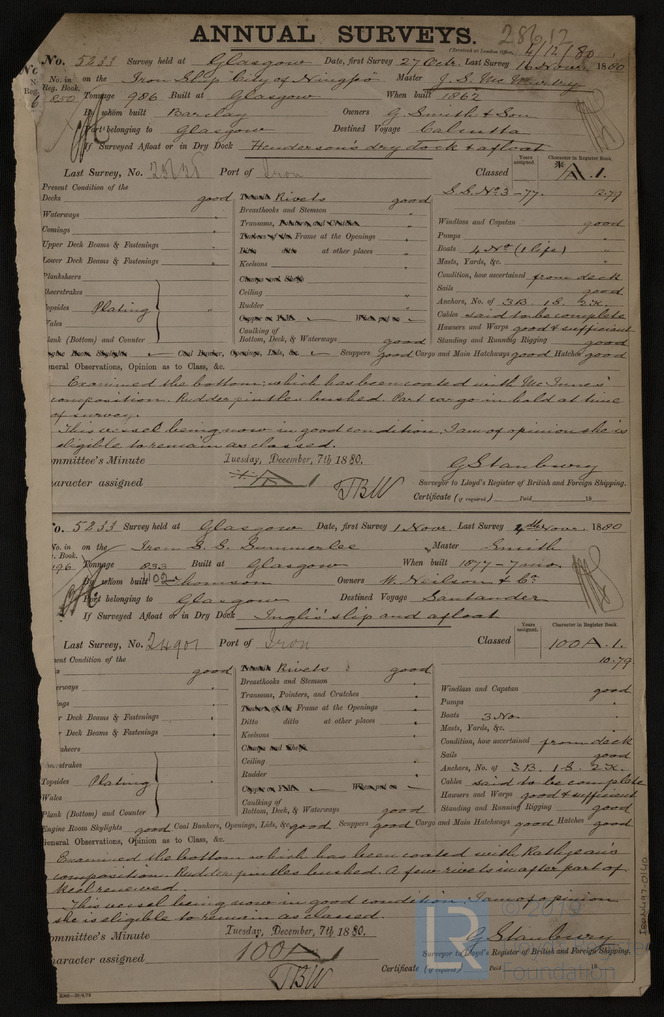 ANNUAL SURVEYS.
28612
(Received at London Office, 4/12/80)
No. 5233 Survey held at Glasgow Date, first Survey 27 Octr. Last Survey 1880
No. in Reg. Book. on the Iron Ship "City of Ningpo" Master J. S. McMurtry
Tonnage 986 Built at Glasgow When built 1862
By whom built Barclay Owners G. Smith & Son
Port belonging to Glasgow Destined Voyage Calcutta
If Surveyed Afloat or in Dry Dock Henderson's dry dock & afloat
Last Survey, No. Port of Iron Classed
Years assigned.
Character in Register Book.
A.1.
S.S. No. 3 - 77. 12.79
Present Condition of the
Decks good Rivets good
Waterways " Breasthooks and Stemson "
Comings " Transoms, Windlass and Capstan good
Upper Deck Beams & Fastenings " Frame at the Openings " Pumps "
Lower Deck Beams & Fastenings " at other places " Boats 4 No. (1 life) "
Planksheers Keelsons " Masts, Yards, &c. "
Sheerstrakes Condition, how ascertained from deck
Topsides Plating " Ceiling " Sails good
Wales Rudder " Anchors, No. of 3B. 1S. 2K.
Cables said to be complete
Plank (Bottom) and Counter " Caulking of Bottom, Deck, & Waterways good Hawsers and Warps good & sufficient
Standing and Running Rigging good
Coal Bunker, Openings, Lids, &c. Scuppers good Cargo and Main Hatchways good Hatches good
General Observations, Opinion as to Class, &c.
Examined the bottom; which has been coated with McInnes'
composition. Rudder pintles bushed. Part cargo in hold at time
of survey.
This vessel being now in good condition, I am of opinion she is
eligible to remain as classed.
Committee's Minute Tuesday, December, 7th 1880.
G Stanbury
Character assigned A 1 TBW
Surveyor to Lloyd's Register of British and Foreign Shipping.
Certificate (if required) Paid 18
No. 5233 Survey held at Glasgow Date, first Survey 1 Novr. Last Survey 4th Novr. 1880
No. in Book. on the Iron S.S. Summerlee Master Smith
Tonnage 833 Built at Glasgow When built 1877 - 7 mo.
By whom built Thomson Owners W. Neilson & Co.
402
Port belonging to Glasgow Destined Voyage Santander
If Surveyed Afloat or in Dry Dock Inglis' slip and afloat
Last Survey, No. 24901 Port of Iron Classed
Years assigned.
Character in Register Book.
100A.1.
10.79
Present Condition of the
good Rivets good
Breasthooks and Stemson "
Transoms, Pointers, and Crutches " Windlass and Capstan good
Deck Beams & Fastenings " Frame at the Openings " Pumps "
Deck Beams & Fastenings " Ditto ditto at other places " Boats 3 No. "
Keelsons " Masts, Yards, &c. "
Condition, how ascertained from deck
Topsides Plating " Ceiling " Sails good
Wales Rudder " Anchors, No. of 3B. 1S. 2K.
Cables said to be complete
Plank (Bottom) and Counter " Caulking of Bottom, Deck, & Waterways good Hawsers and Warps good & sufficient
Standing and Running Rigging good
Engine Room Skylights good Coal Bunkers, Openings, Lids, &c. good Scuppers good Cargo and Main Hatchways good Hatches good
General Observations, Opinion as to Class, &c.
Examined the bottom which has been coated with Rathjean's
composition. Rudder pintles bushed. A few rivets in after part of
keel renewed.
This vessel being now in good condition, I am of opinion
she is eligible to remain as classed.
Committee's Minute Tuesday, December, 7th 1880.
G Stanbury
Character assigned 100A TBW
Surveyor to Lloyd's Register of British and Foreign Shipping.
Certificate (if required) Paid 18
IRON497-0140
LR
Foundation